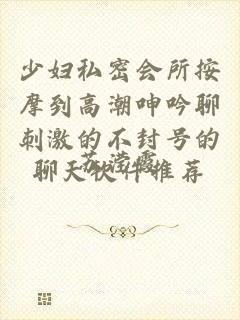 少妇私密会所按
摩到高潮呻吟聊
刺激的不封号的
聊天软件推荐